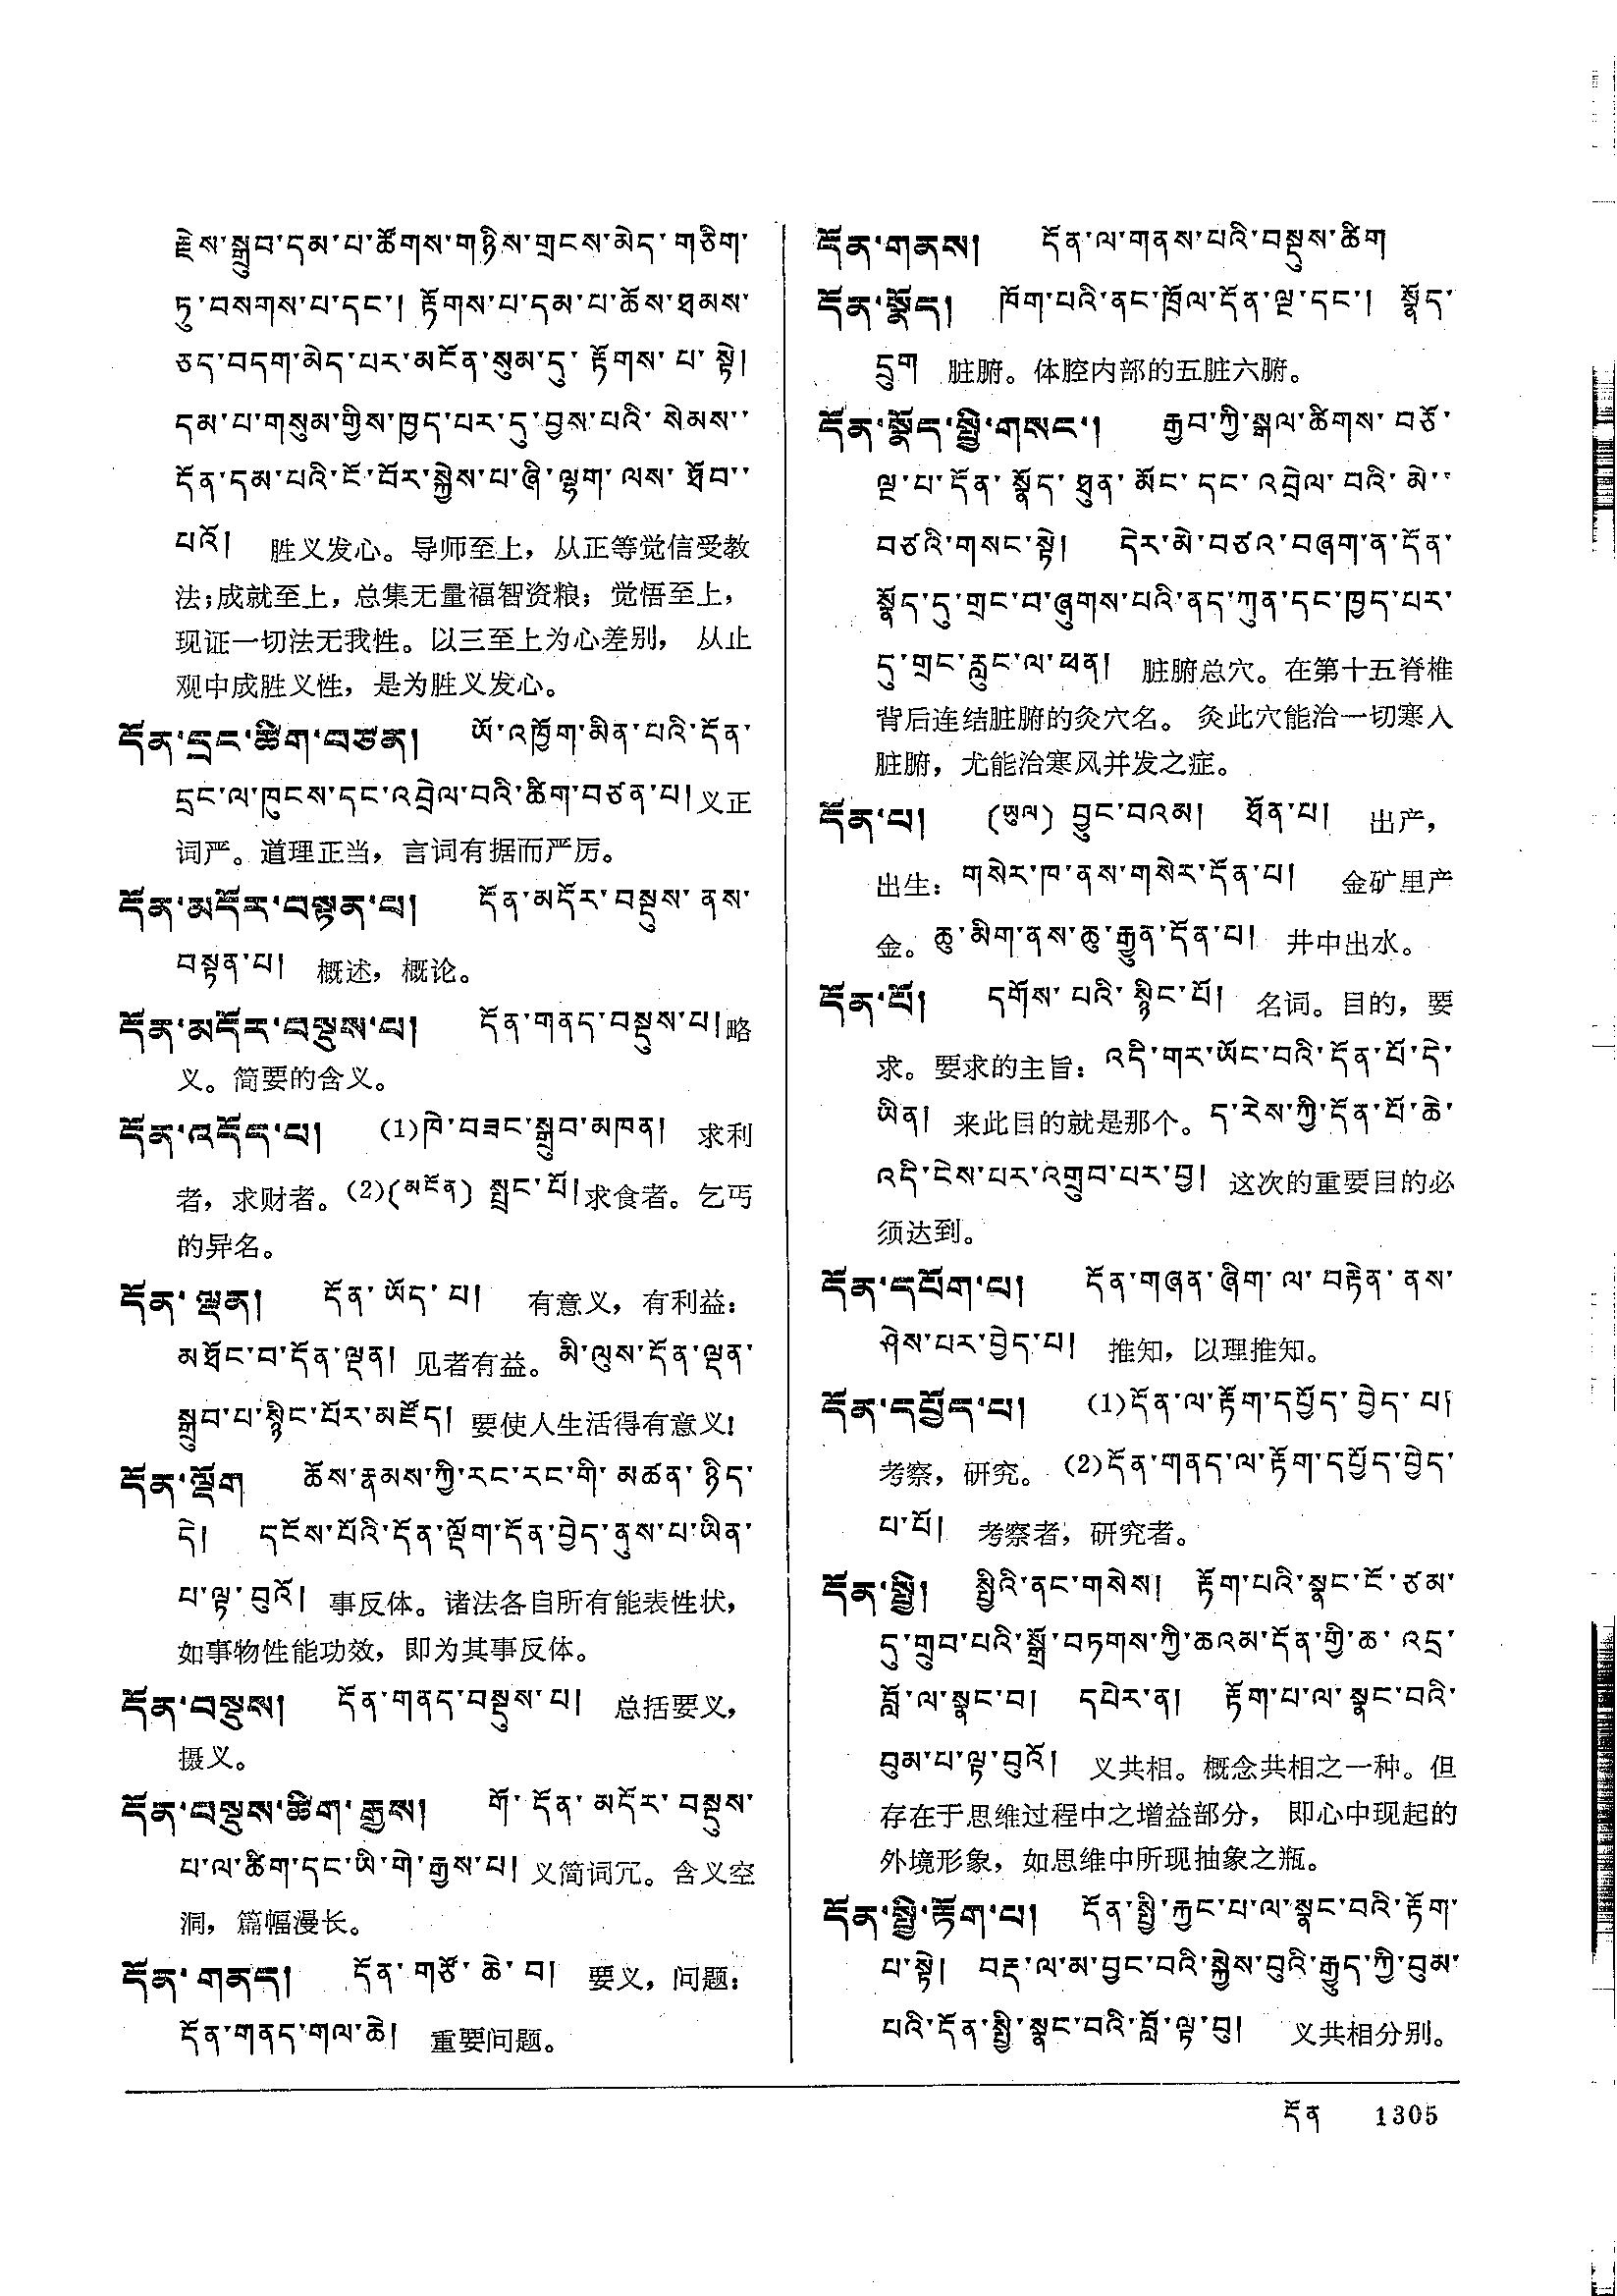 རྗེས་སྒྲུབ་དམ་པ་ཚོགས་གཉིས་གྲངས་མེད་གཅིག་
ཏུ་བསགས་པ་དང་། རྟོགས་པ་དམ་པ་ཆོས་ཐམས་
ཅད་བདག་མེད་པར་མངོན་སུམ་དུ་རྟོགས་པ་སྟེ།
དམ་པ་གསུམ་གྱིས་ཁྱད་པར་དུ་བྱས་པའི་སེམས་
དོན་དམ་པའི་ངོ་བོར་སྐྱེས་པ་ཞི་ལྷག་ལས་ཐོབ་
པའོ། 胜义发心。导师至上，从正等觉信受教
法；成就至上，总集无量福智资粮；觉悟至上，
现证一切法无我性。以三至上为心差别， 从止
观中成胜义性，是为胜义发心。
དོན་དྲང་ཚིག་བཙན། ཨོ་འཁྱོག་མིན་པའི་དོན་
དྲང་ལ་ཁུངས་དང་འབྲེལ་བའི་ཚིག་བཙན་པ། 义正
词严。道理正当，言词有据而严厉。
དོན་མདོར་བསྟན་པ། དོན་མདོར་བསྡུས་ནས་
བསྟན་པ། 概述，概论。
དོན་མདོར་བསྡུས་པ། དོན་གནད་བསྡུས་པ། 略
义。简要的含义。
དོན་འདོད་པ། (1)ཁེ་བཟང་སྒྲུབ་མཁན། 求利
者，求财者。(2)(མངོན) སྤྲང་པོ། 求食者。乞丐
的异名。
དོན་ལྡན། དོན་ཡོད་པ། 有意义，有利益：
མཐོང་བ་དོན་ལྡན། 见者有益。མི་ལུས་དོན་ལྡན་
སྒྲུབ་པ་སྙིང་པོར་མཛོད། 要使人生活得有意义！
དོན་ལྡོག ཆོས་རྣམས་ཀྱི་རང་རང་གི་མཚན་ཉིད་
དེ། དངོས་པོའི་དོན་ལྡོག་དོན་བྱེད་ནུས་པ་ཡིན་
པ་ལྟ་བུའོ། 事反体。诸法各自所有能表性状，
如事物性能功效，即为其事反体。
དོན་བསྡུས། དོན་གནད་བསྡུས་པ། 总括要义，
摄义。
དོན་བསྡུས་ཚིག་རྒྱས། གོ་དོན་མདོར་བསྡུས་
པ་ལ་ཚིག་དང་ཡི་གེ་རྒྱས་པ། 义简词冗。含义空
洞，篇幅漫长。
དོན་གནད། དོན་གཙོ་ཆེ་བ། 要义，问题：
དོན་གནད་གལ་ཆེ། 重要问题。
དོན་གནས། དོན་ལ་གནས་པའི་བསྡུས་ཚིག
དོན་སྣོད། ཁོག་པའི་ནང་ཁྲོལ་དོན་ལྔ་དང་། སྣོད་
དྲུག 脏腑。体腔内部的五脏六腑。
དོན་སྣོད་སྤྱི་གསང་། རྒྱབ་ཀྱི་སྒལ་ཚིགས་བཅོ་
ལྔ་པ་དོན་སྣོད་ཐུན་མོང་དང་འབྲེལ་བའི་མེ་
བཙའི་གསང་སྟེ། དེར་མེ་བཙའ་བཞག་ན་དོན་
སྣོད་དུ་གྲང་བ་ཞུགས་པའི་ནད་ཀུན་དང་ཁྱད་པར་
དུ་གྲང་རླུང་ལ་ཕན། 脏腑总穴。在第十五脊椎
背后连结脏腑的灸穴名。 灸此穴能治一切寒入
脏腑，尤能治寒风并发之症。
དོན་པ། (ཡུལ) བྱུང་བའམ། ཐོན་པ། 出产，
出生：གསེར་ཁ་ནས་གསེར་དོན་པ། 金矿里产
金。ཆུ་མིག་ནས་ཆུ་རྒྱུན་དོན་པ། 井中出水。
དོན་པོ། དགོས་པའི་སྙིང་པོ། 名词。目的，要
求。要求的主旨：འདི་གར་ཡོང་བའི་དོན་པོ་དེ་
ཡིན། 来此目的就是那个。ད་རེས་ཀྱི་དོན་པོ་ཆེ་
འདི་ངེས་པར་འགྲུབ་པར་བྱ། 这次的重要目的必
须达到。
དོན་དཔོག་པ། དོན་གཞན་ཞིག་ལ་བརྟེན་ནས་
ཤེས་པར་བྱེད་པ། 推知，以理推知。
དོན་དཔྱོད་པ། (1)དོན་ལ་རྟོག་དཔྱོད་བྱེད་པ།
考察，研究。(2)དོན་གནད་ལ་རྟོག་དཔྱོད་བྱེད་
པ་པོ། 考察者，研究者。
དོན་སྤྱི། སྤྱིའི་ནང་གསེས། རྟོག་པའི་སྣང་ངོ་ཙམ་
དུ་གྲུབ་པའི་སྒྲོ་བཏགས་ཀྱི་ཆའམ་དོན་གྱི་ཆ་འདྲ་
བློ་ལ་སྣང་བ། དཔེར་ན། རྟོག་པ་ལ་སྣང་བའི་
བུམ་པ་ལྟ་བུའོ། 义共相。概念共相之一种。但
存在于思维过程中之增益部分， 即心中现起的
外境形象，如思维中所现抽象之瓶。
དོན་སྤྱི་རྟོག་པ། དོན་སྤྱི་རྐྱང་པ་ལ་སྣང་བའི་རྟོག་
པ་སྟེ། བརྡ་ལ་མ་བྱང་བའི་སྐྱེས་བུའི་རྒྱུད་ཀྱི་བུམ་
པའི་དོན་སྤྱི་སྣང་བའི་བློ་ལྟ་བུ། 义共相分别。
དོན 1305